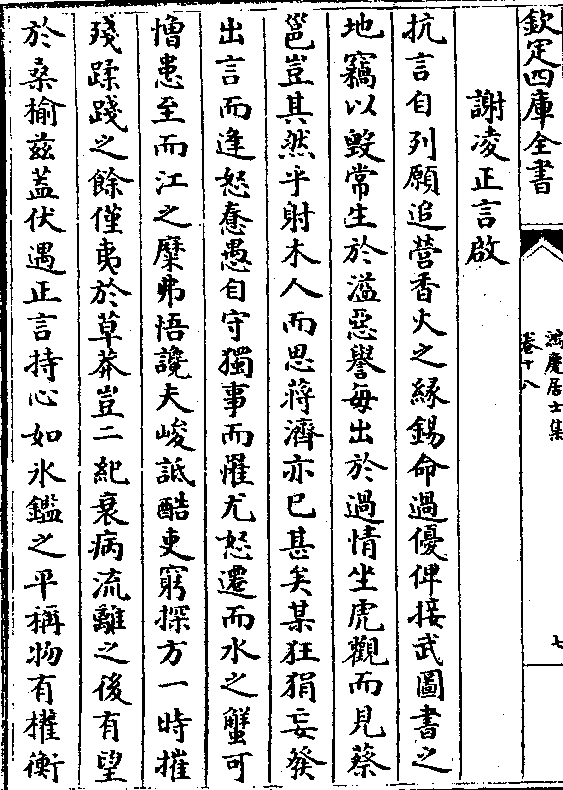 欽定四庫全書
鴻慶居士集
卷十八
七
謝凌正言啟
抗言自列願追營香火之縁錫命過優俾接武圖書之
地竊以毀常生於溢惡譽每出於過情坐虎觀而見蔡
邕豈其然乎射木人而思蔣濟亦已甚矣某狂狷妄發
出言而逢怒惷愚自守獨事而罹尤怒遷而水之蟹可
憎患至而江之糜弗悟讒夫峻詆酷吏窮探方一時摧
殘蹂踐之餘僅夷於草莽豈二紀衰病流離之後有望
於桑榆兹蓋伏遇正言持心如氷鑑之平稱物有權衡